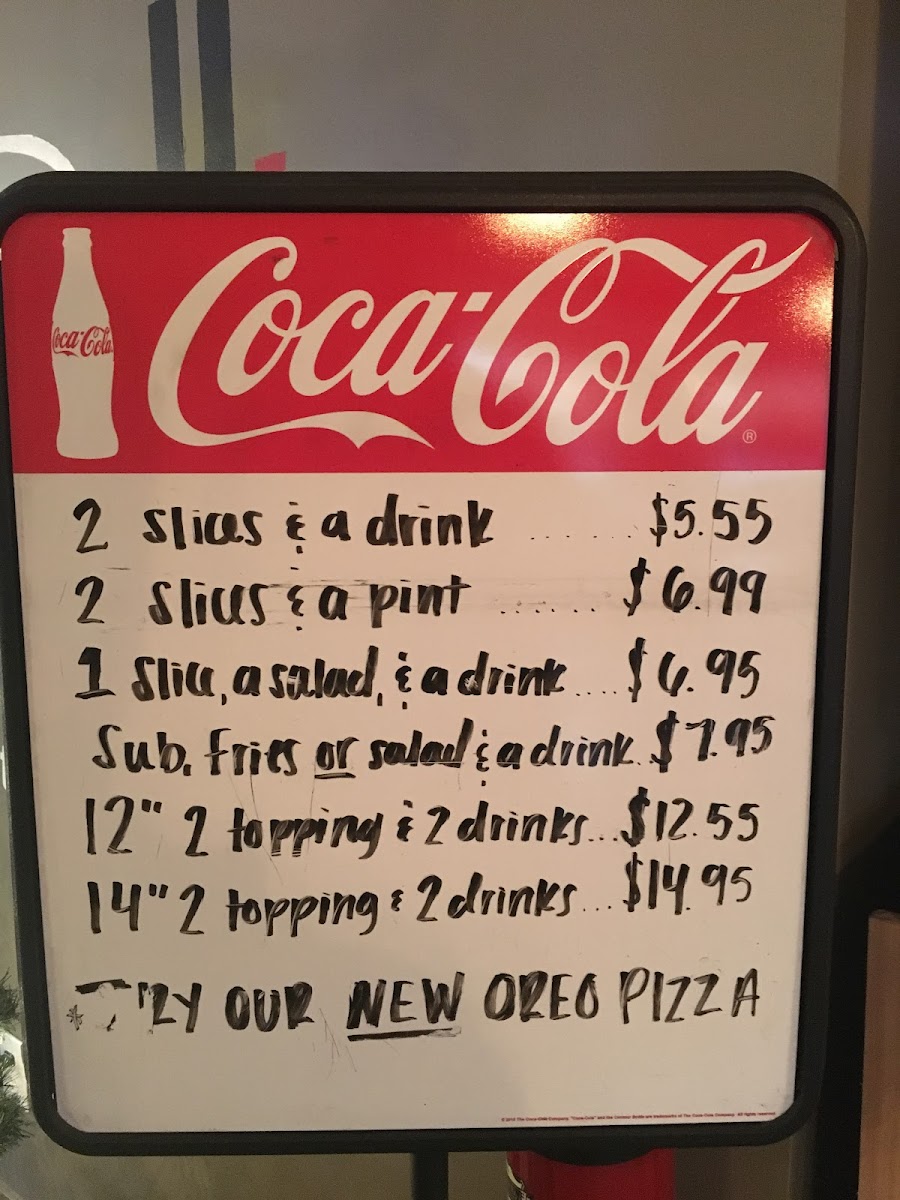 Coca-Cola
Coca-Cola ®
2 slices & a drink ...... $5.55
2 slices & a pint ....... $6.99
1 slice, a salad, & a drink .... $6.95
Sub, fries or salad & a drink. $7.95
12" 2 topping & 2 drinks... $12.55
14" 2 topping & 2 drinks... $14.95
* TRY OUR NEW OREO PIZZA